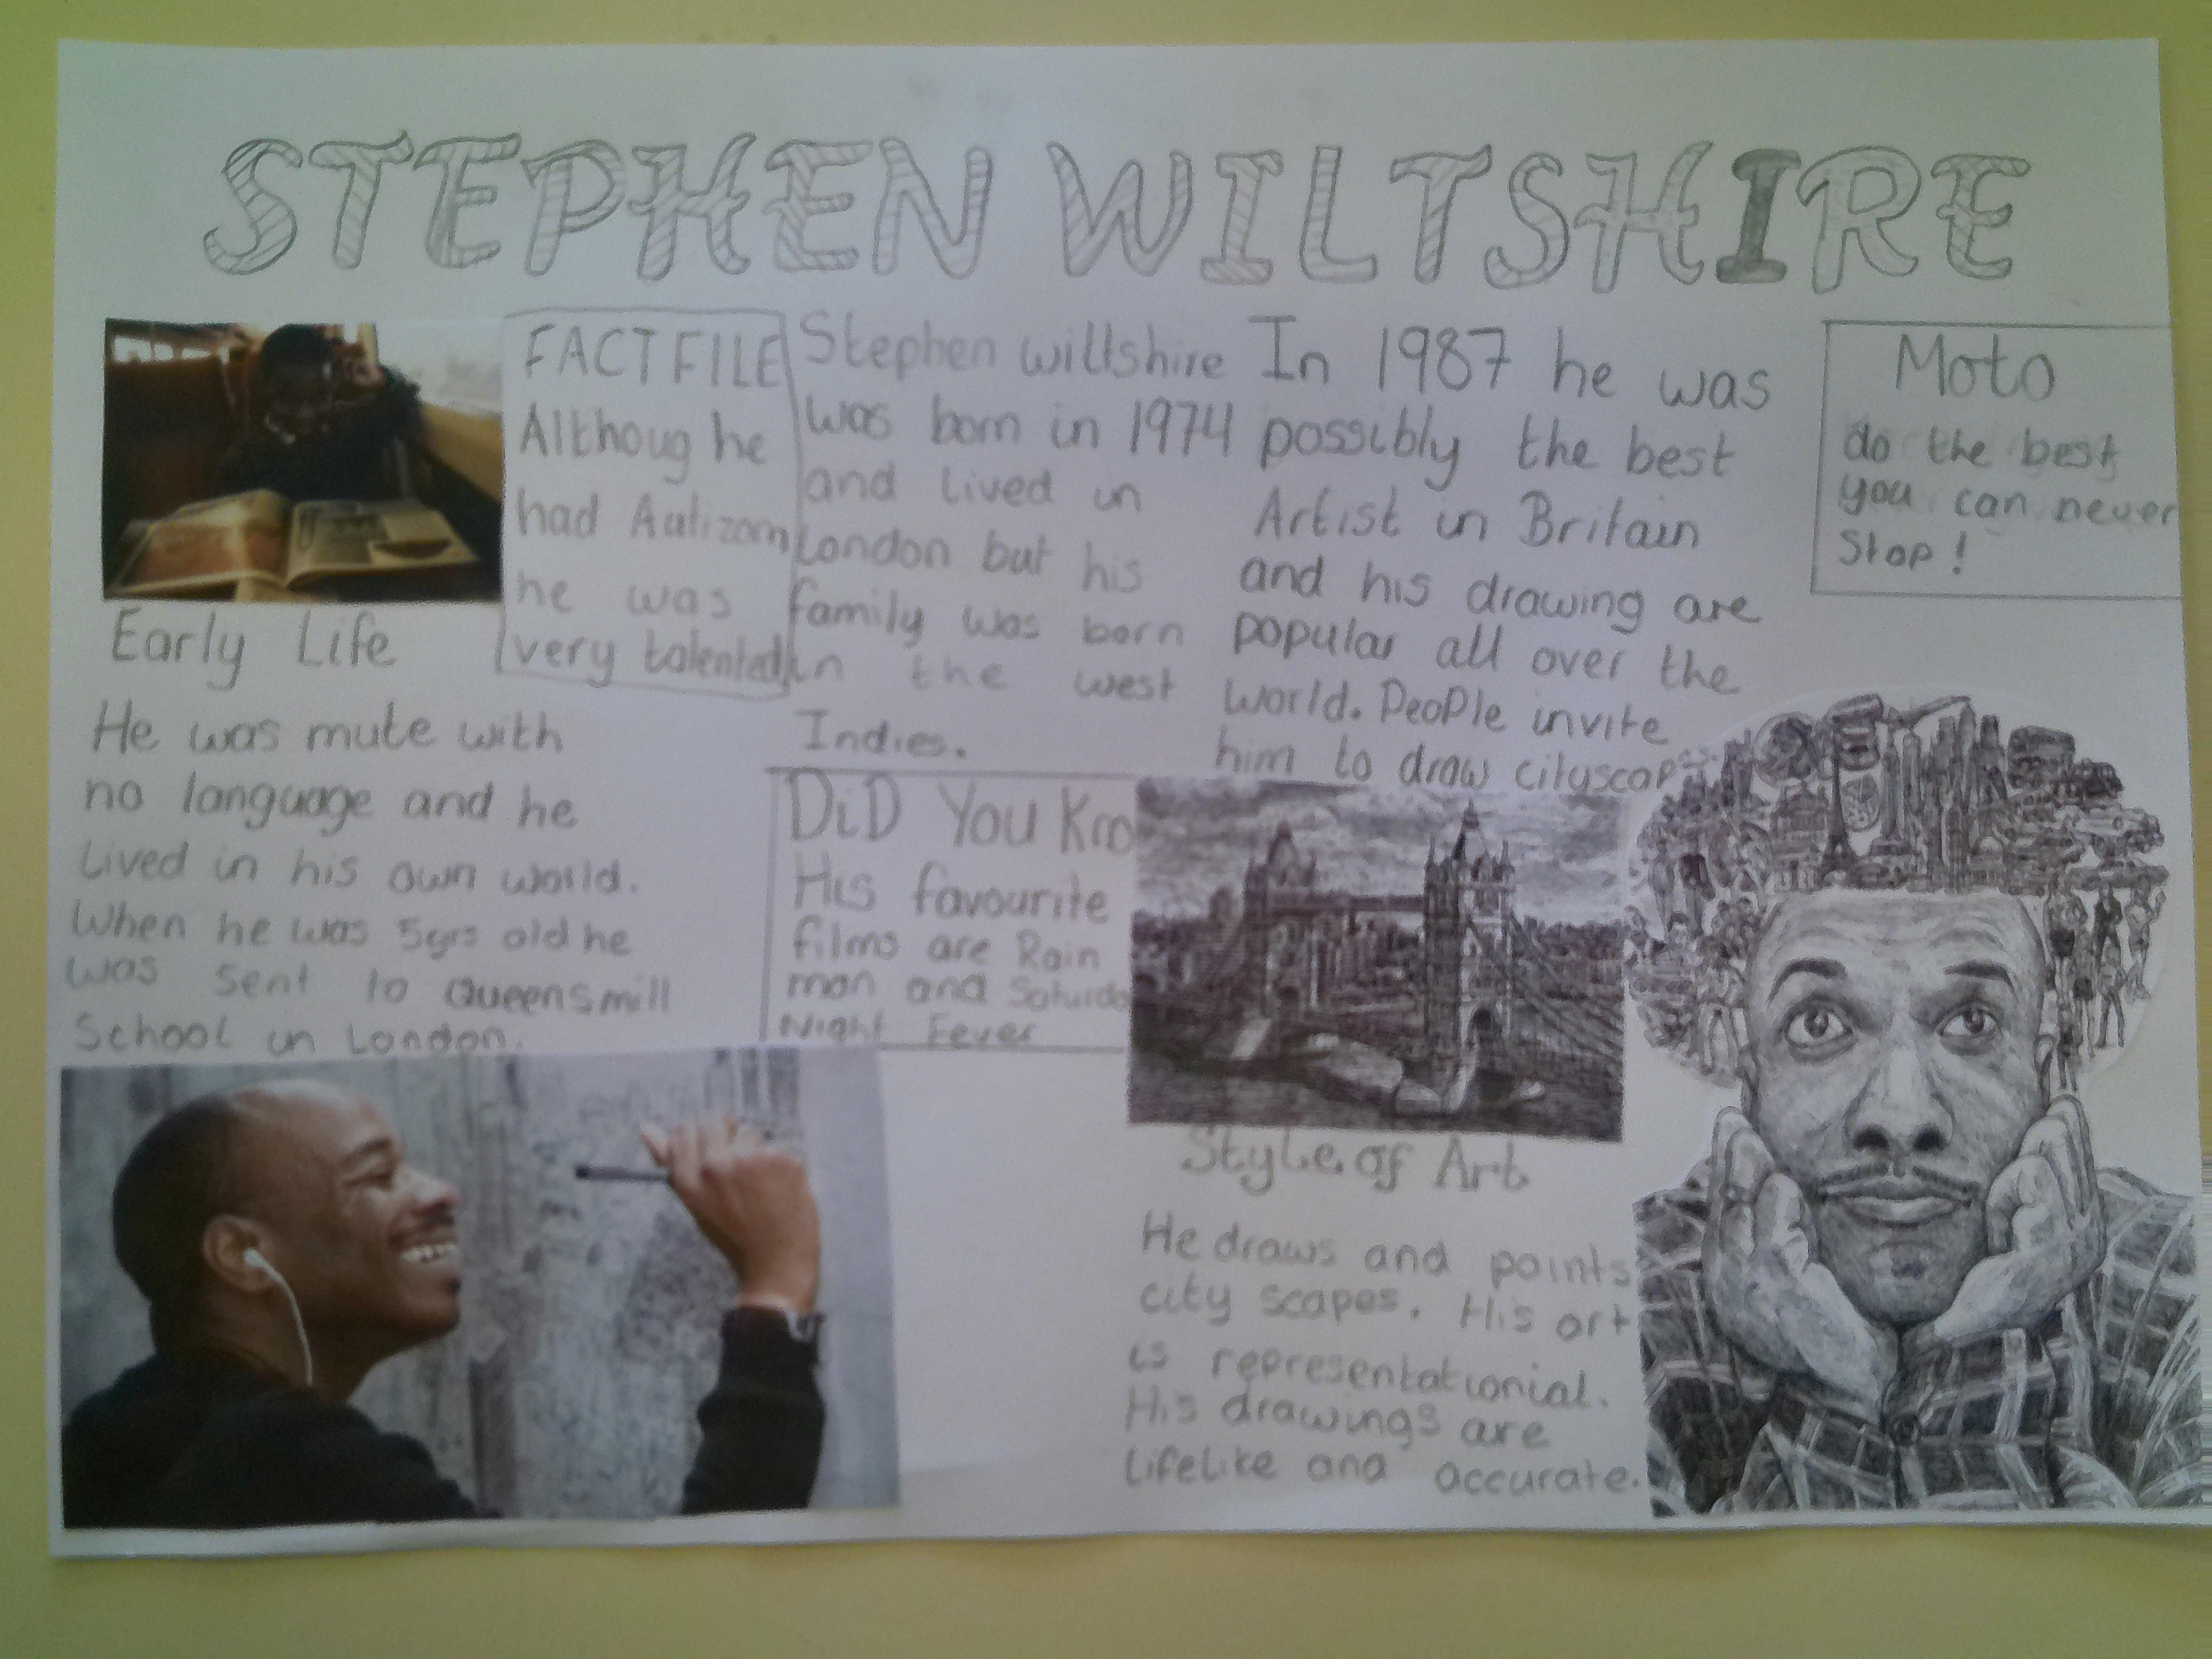 STEPHEN WILTSHIRE
FACT FILE
Althoug he
had Autizom
he was
very talented
Stephen wiltshire
was born in 1974
and lived in
London but his
family was born
in the west
Indies.
In 1987 he was
possibly the best
Artist in Britain
and his drawing are
popular all over the
world. People invite
him to draw cityscap
Moto
do the best
you can never
Stop!
Early Life
He was mute with
no language and he
Lived in his own world.
When he was 5yrs old he
was sent to Queensmill
School in London.
DiD You Kno
His favourite
films are Rain
man and Saturda
Night Fever
Style of Art
He draws and paints
city scapes. His art
is representationial.
His drawings are
lifelike and accurate.